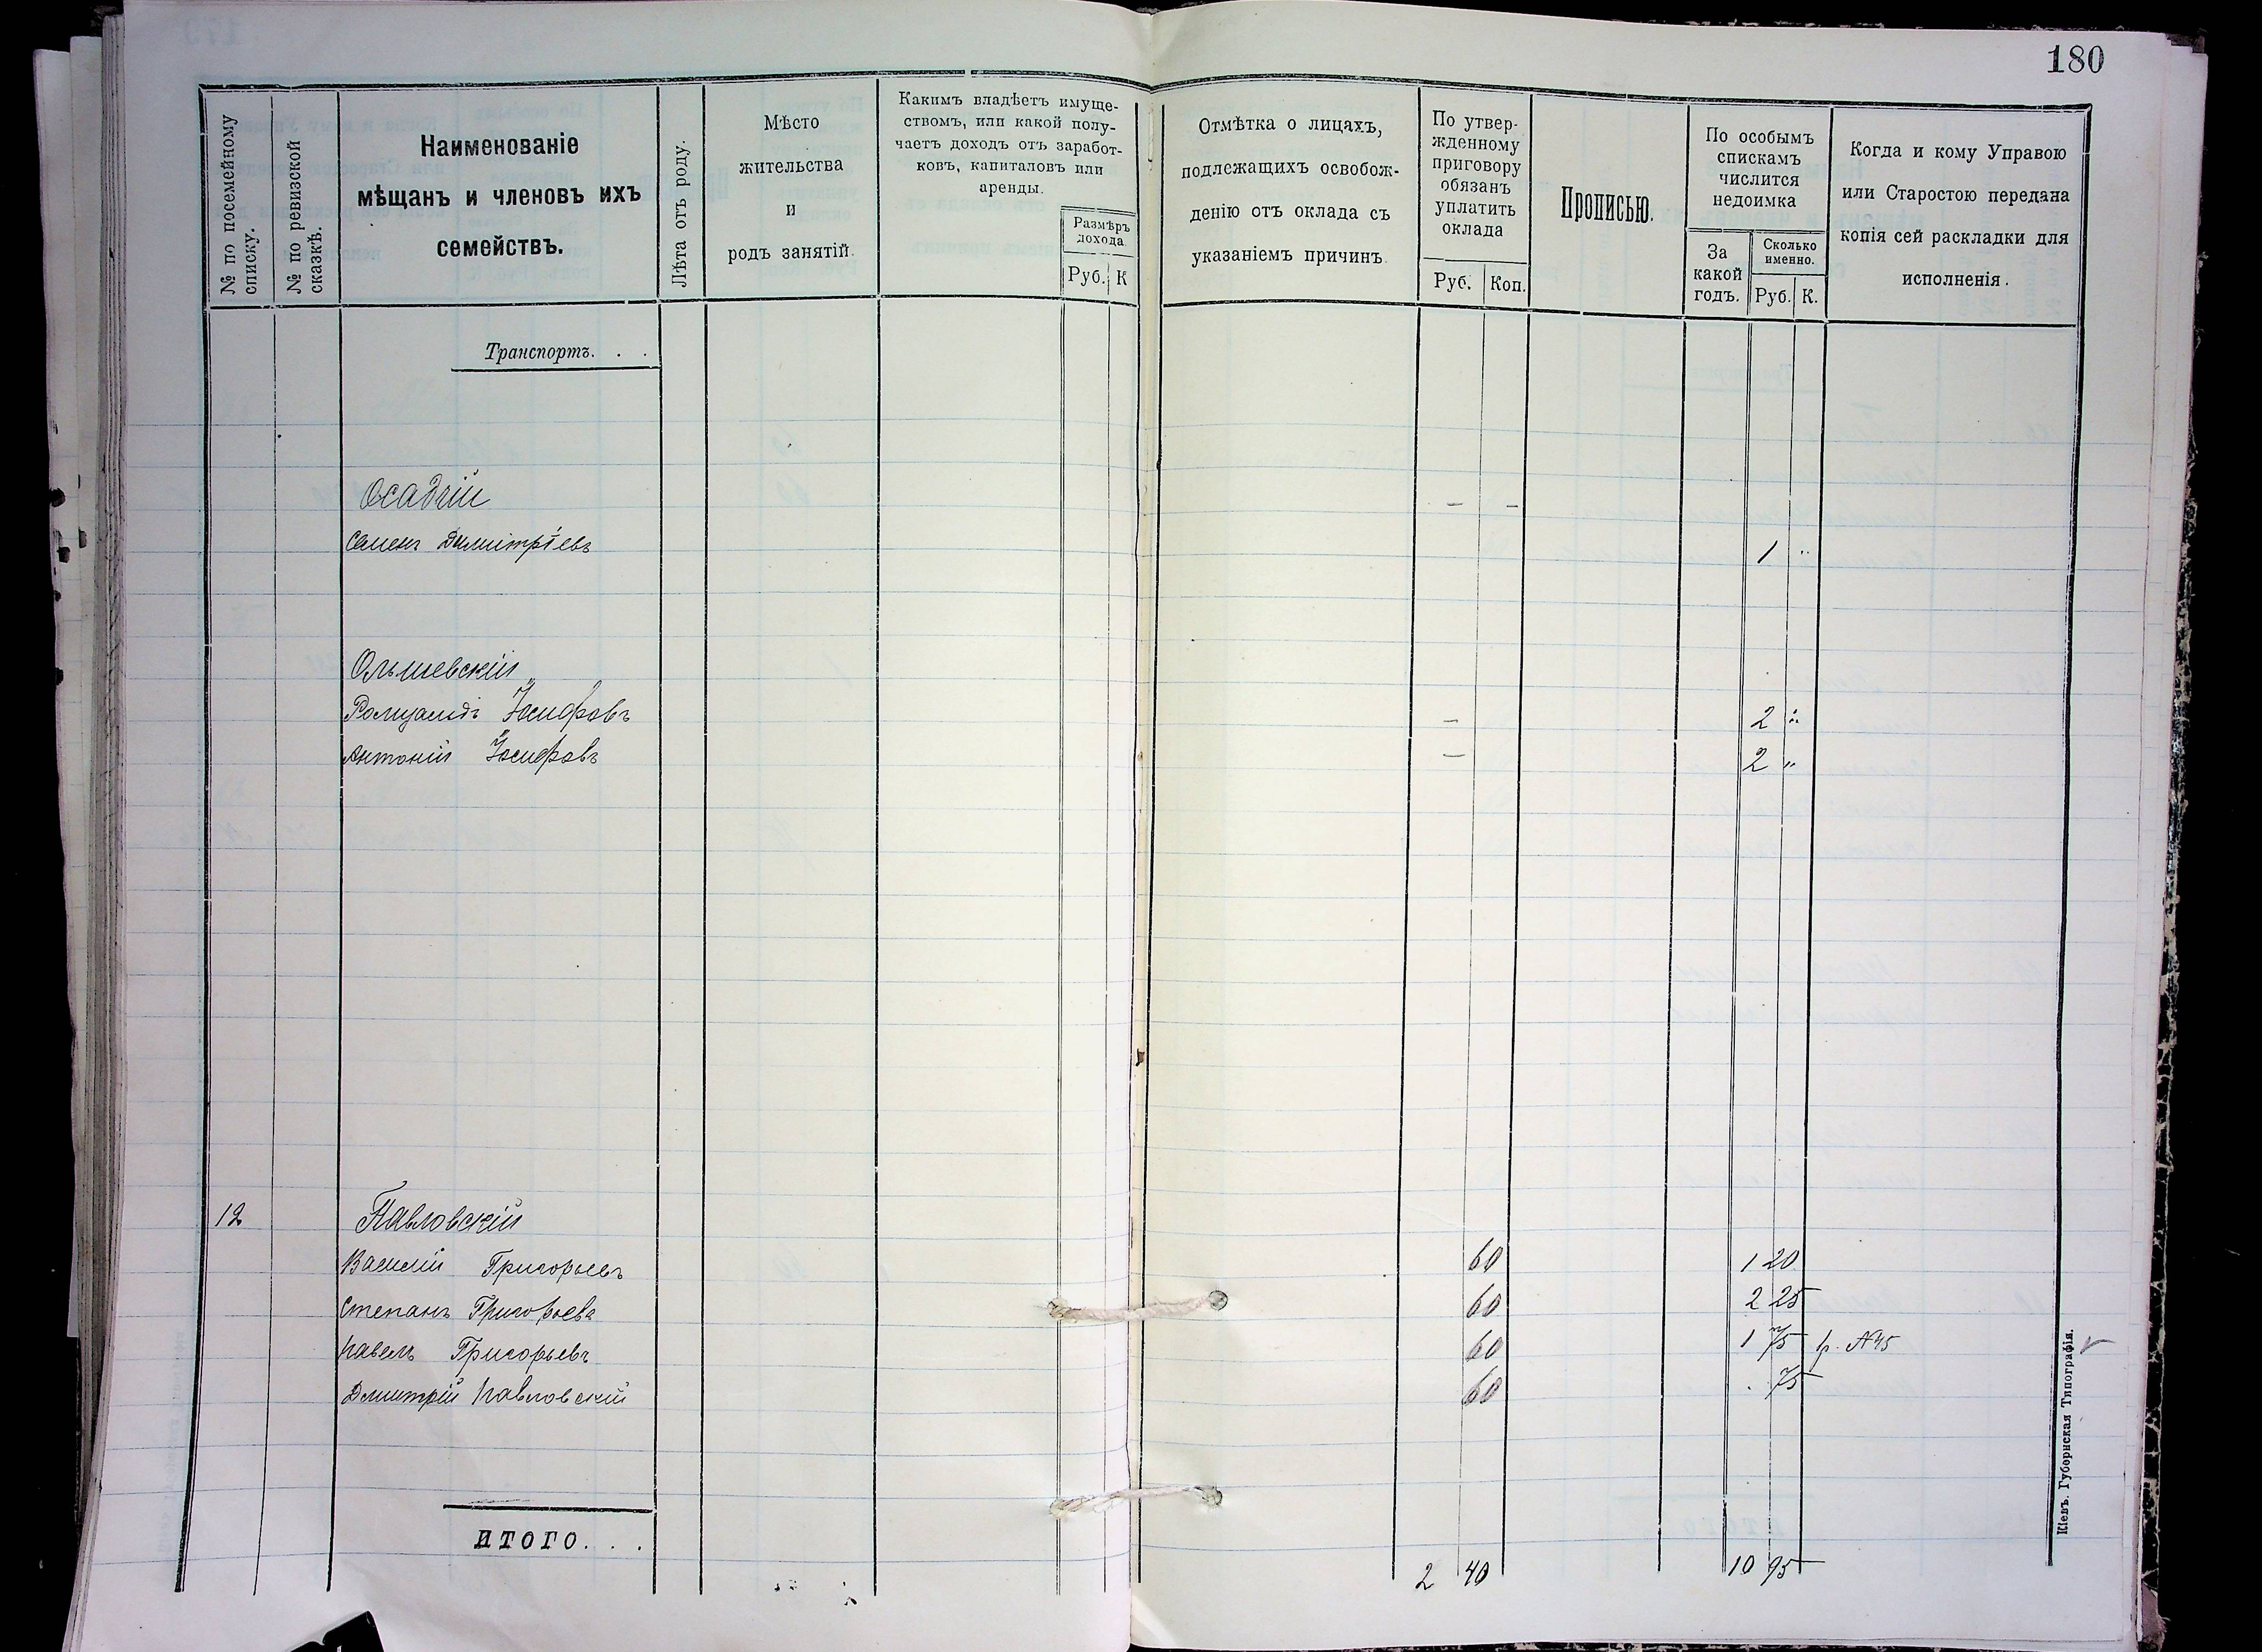 180
№ по посемейному списку.
№ по ревизской сказкѣ.
Наименованіе
мѣщанъ и членовъ ихъ
семействъ.
Лѣта отъ роду.
Мѣсто
жительства
и
родъ занятій.
Какимъ владѣетъ имуще-
ствомъ, или какой полу-
чаетъ доходъ отъ заработ-
ковъ, капиталовъ или
аренды.
Размѣръ
дохода.
Руб. К
Отмѣтка о лицахъ,
подлежащихъ освобож-
денію отъ оклада съ
указаніемъ причинъ
По утвер-
жденному
приговору
обязанъ
уплатить
оклада
Руб. Коп.
Прописью.
По особымъ
спискамъ
числится
недоимка
За
какой
годъ.
Сколько
именно.
Руб. К.
Когда и кому Управою
или Старостою передана
копія сей раскладки для
исполненія.
Транспортъ. . .
Осадчій — —
Семенъ Димитріевъ 1 "
Ольшевскій
Ромуальдъ Іосифовъ — 2 "
Антоній Іосифовъ — 2 "
12 Павловскій
Василій Григорьевъ 60 1 20
Степанъ Григорьевъ 60 2 25
Павелъ Григорьевъ 60 1 75 р. №45
Дмитрій Павловскій 60 . 75
ИТОГО. . .
2 40 10 95
Кіевъ. Губернская Типографія.